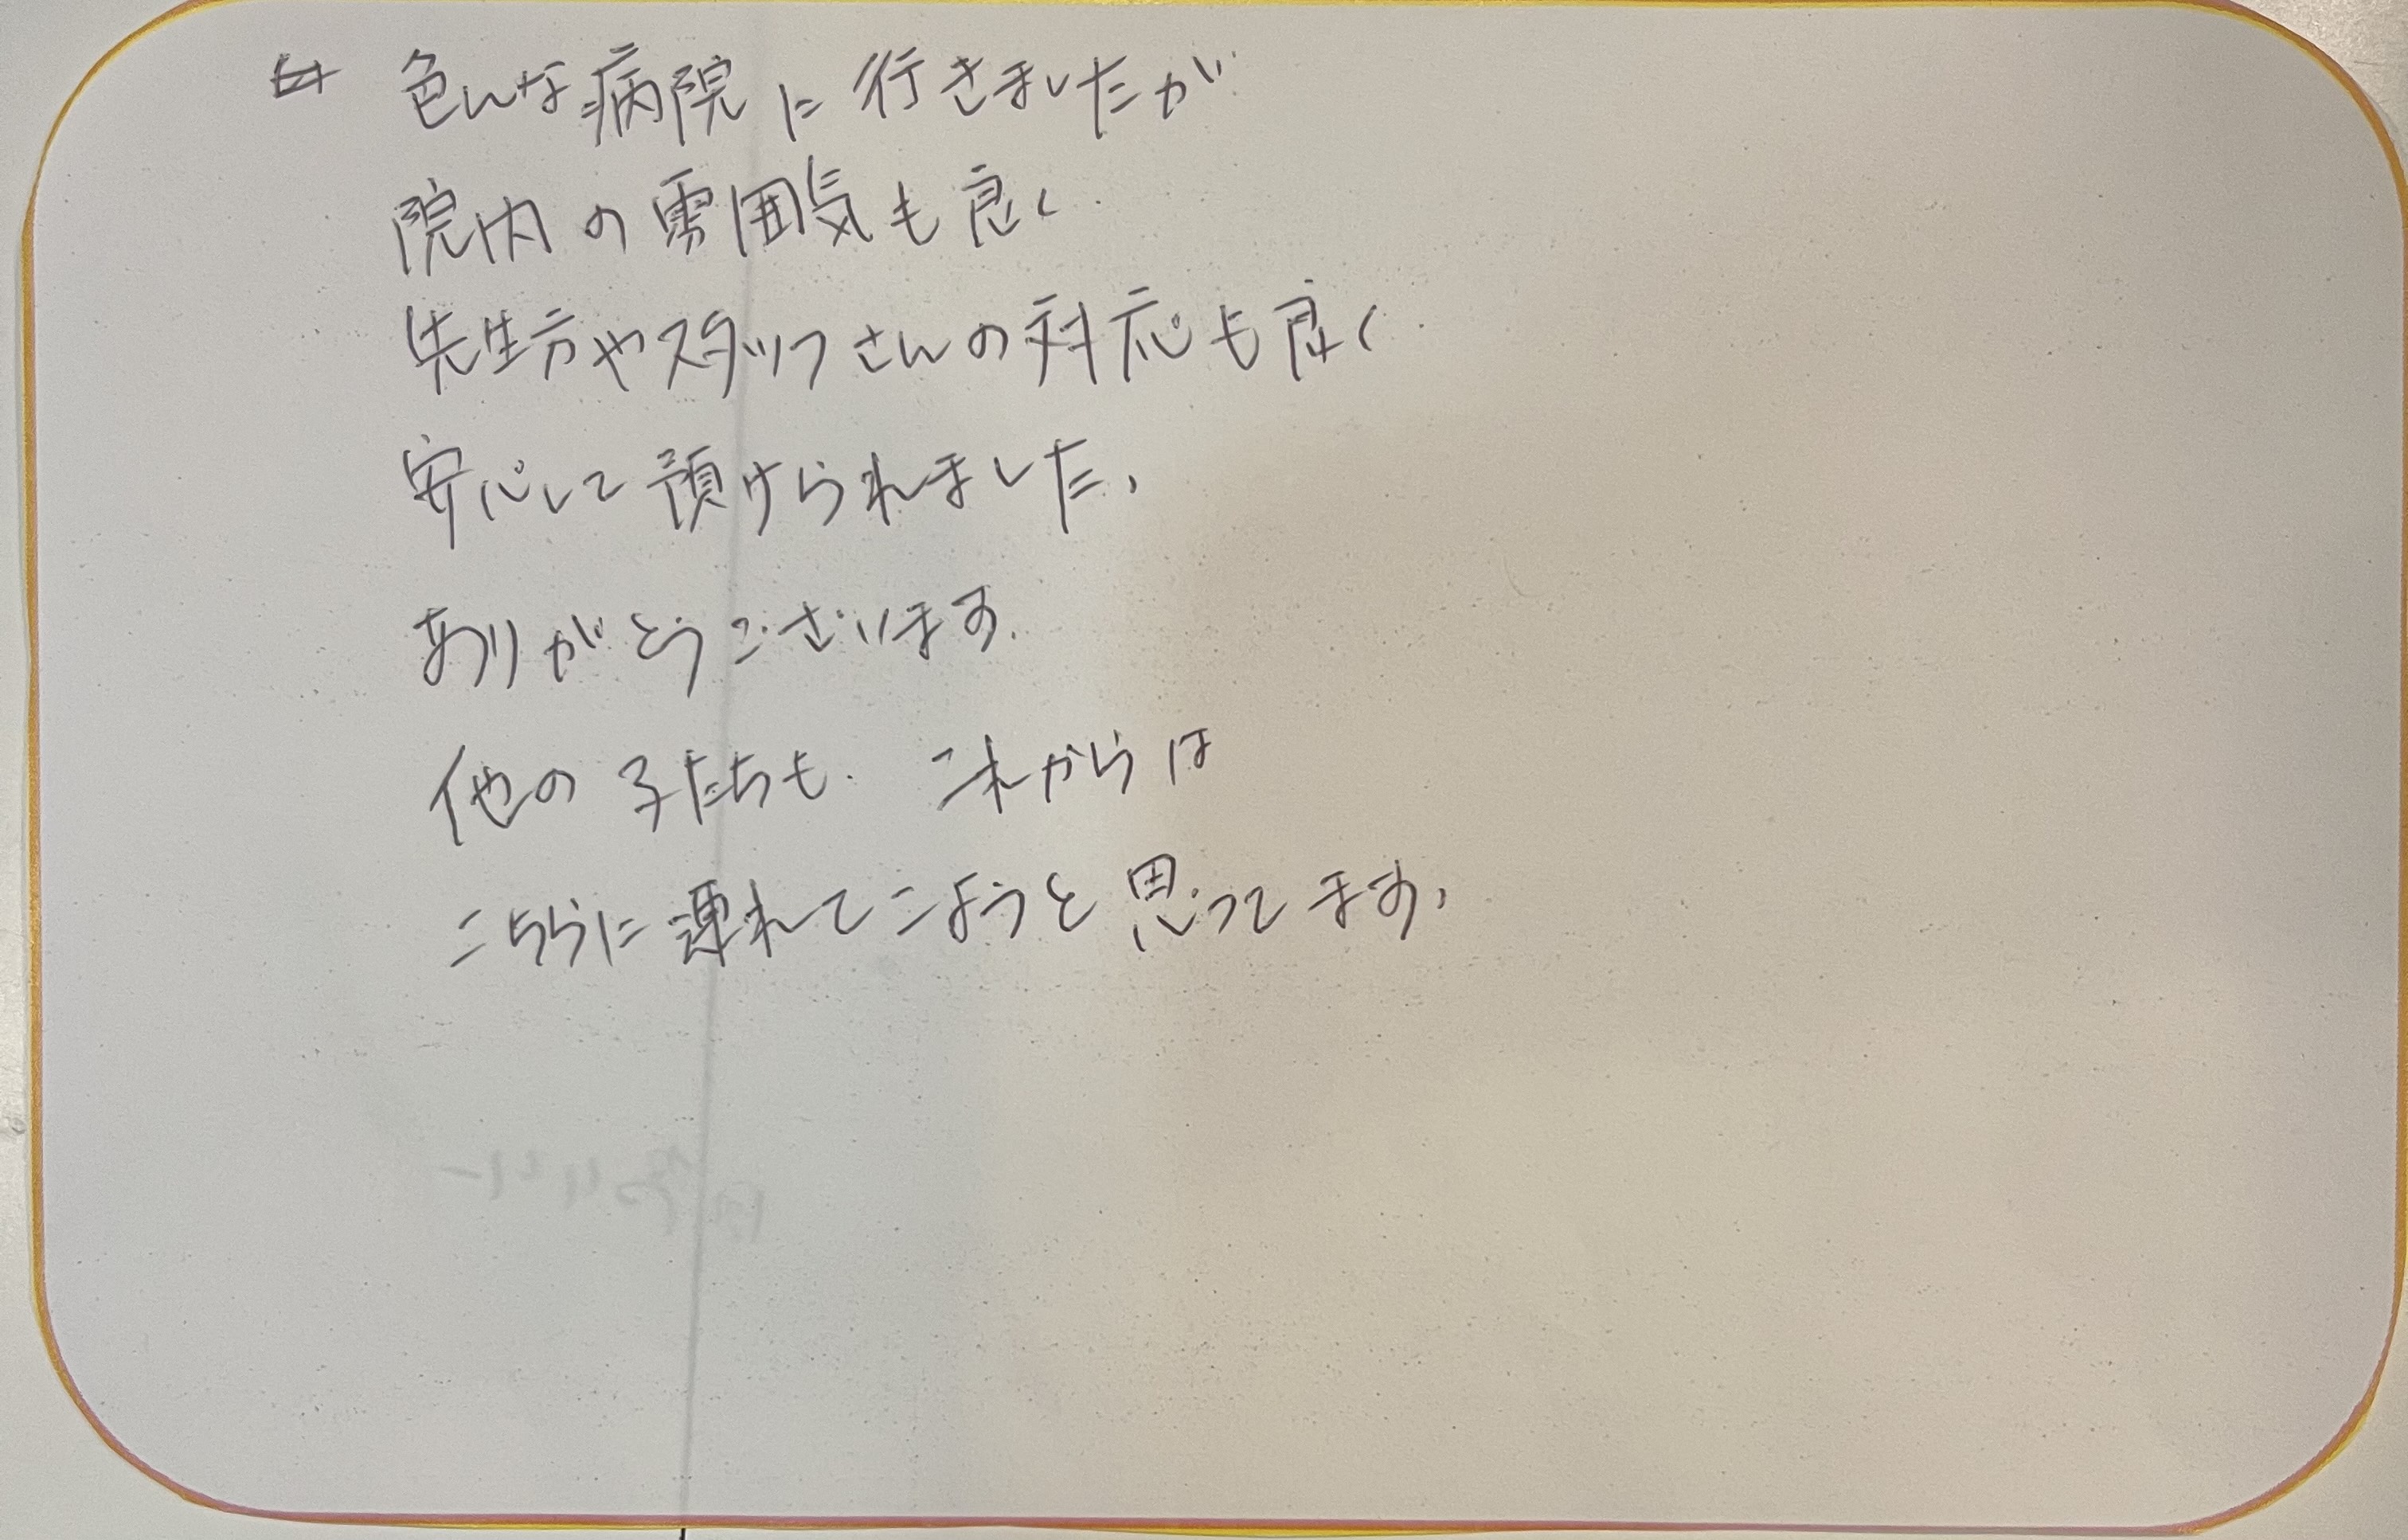 色んな病院に行きましたが
院内の雰囲気も良く
先生方やスタッフさんの対応も良く
安心して預けられました。
ありがとうございます。
他の子たちも、これからは
こちらに連れてこようと思ってます。